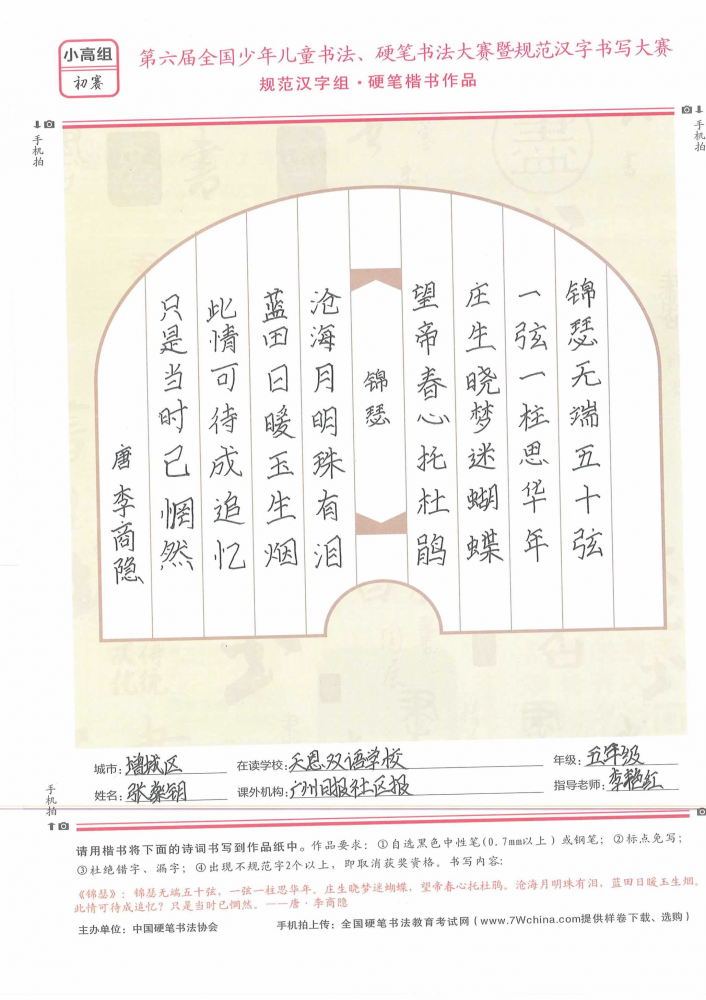 小高组
初赛
第六届全国少年儿童书法、硬笔书法大赛暨规范汉字书写大赛
规范汉字组·硬笔楷书作品
手机拍
手机拍
锦瑟无端五十弦
一弦一柱思华年
庄生晓梦迷蝴蝶
望帝春心托杜鹃
锦瑟
沧海月明珠有泪
蓝田日暖玉生烟
此情可待成追忆
只是当时已惘然
唐李商隐
城市：增城区 在读学校：天恩双语学校 年级：五年级
姓名：张燊钥 课外机构：广州日报社区报 指导老师：李艳红
手机拍
请用楷书将下面的诗词书写到作品纸中。作品要求：①自选黑色中性笔(0.7mm以上）或钢笔；②标点免写；
③杜绝错字、漏字；④出现不规范字2个以上，即取消获奖资格。书写内容：
《锦瑟》：锦瑟无端五十弦，一弦一柱思华年。庄生晓梦迷蝴蝶，望帝春心托杜鹃。沧海月明珠有泪，蓝田日暖玉生烟。
此情可待成追忆？只是当时已惘然。——唐·李商隐
主办单位：中国硬笔书法协会 手机拍上传：全国硬笔书法教育考试网（www.7Wchina.com提供样卷下载、选购）